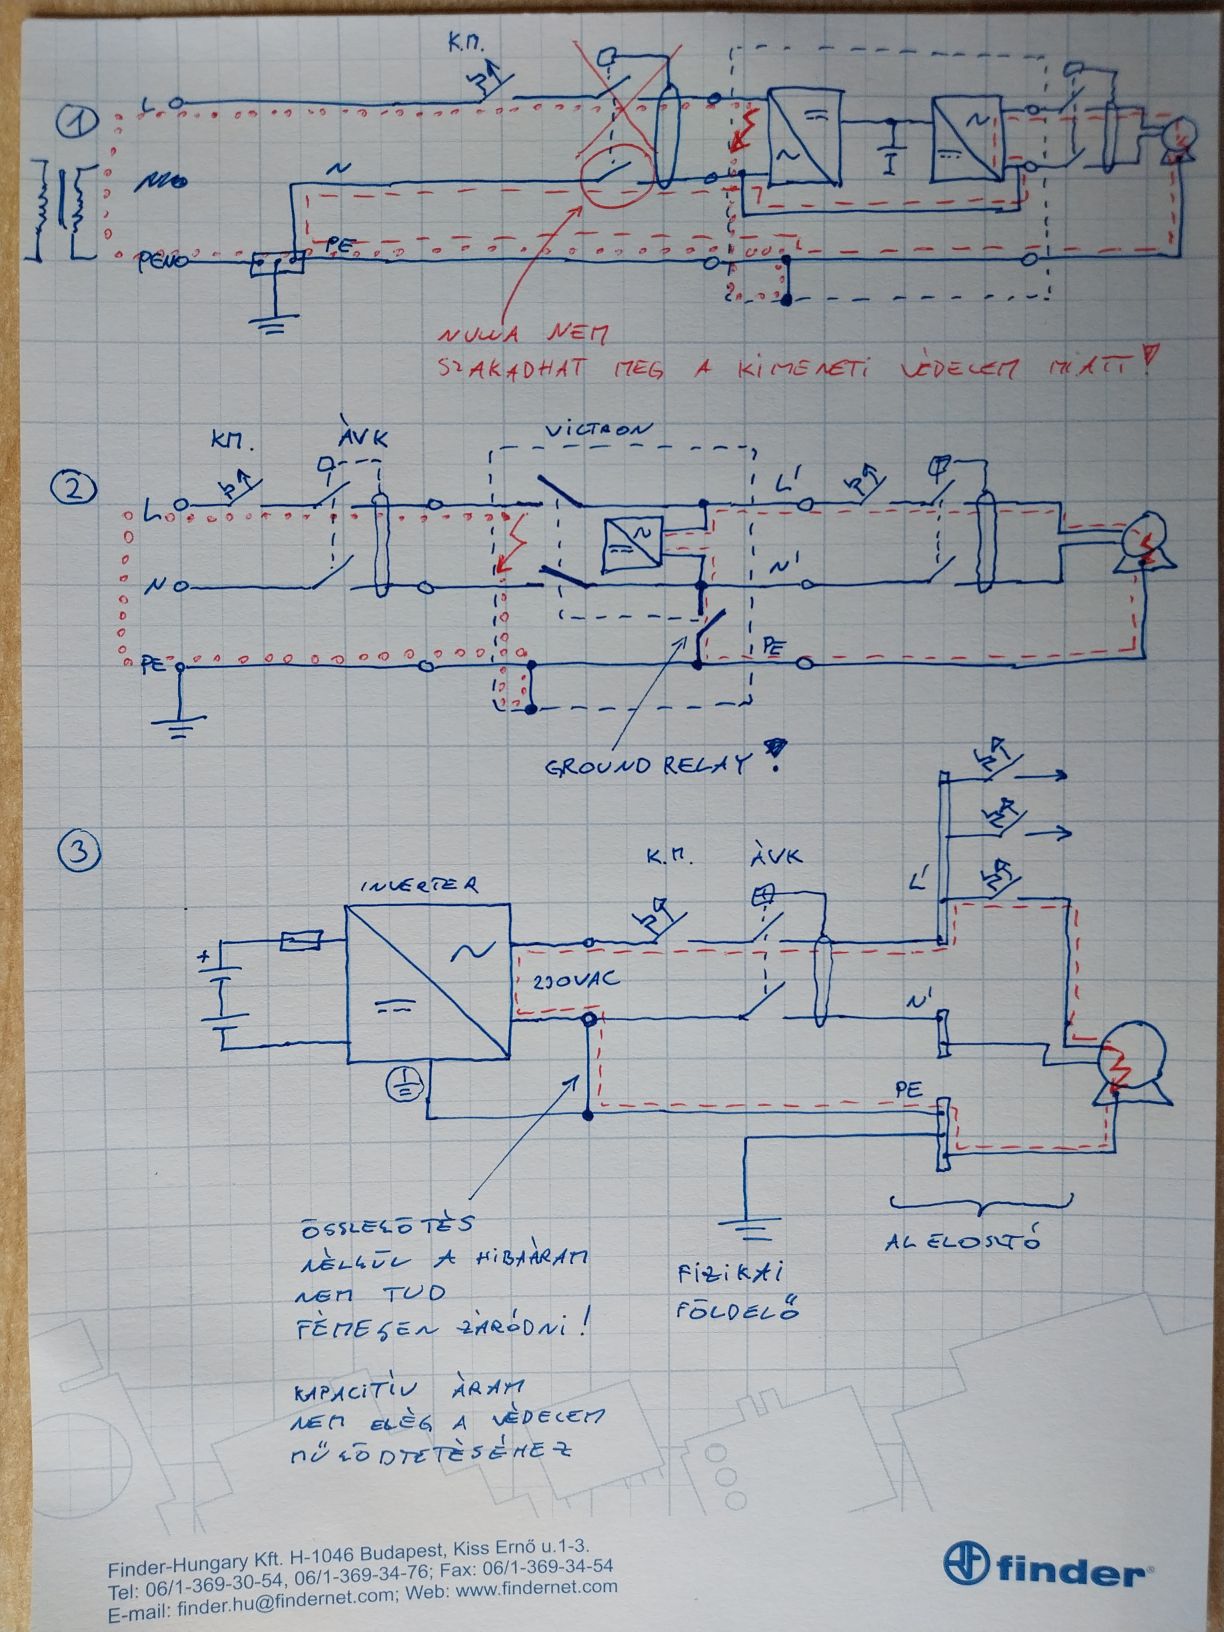 K.M.
1
L
N
PEN
PE
NULLA NEM
SZAKADHAT MEG A KIMENETI VÉDELEM MIATT!
2
KM.
ÁVK
VICTRON
L
L'
N
N'
PE
PE
GROUND RELAY!
3
INVERTER
K.M.
ÁVK
L'
+
230VAC
N'
PE
ÖSSZEKÖTÉS
NÉLKÜL A HIBAÁRAM
NEM TUD
FÉMESEN ZÁRÓDNI!
ALELOSZTÓ
FIZIKAI
FÖLDELŐ
KAPACITÍV ÁRAM
NEM ELÉG A VÉDELEM
MŰKÖDTETÉSÉHEZ
Finder-Hungary Kft. H-1046 Budapest, Kiss Ernő u.1-3.
Tel: 06/1-369-30-54, 06/1-369-34-76; Fax: 06/1-369-34-54
E-mail: finder.hu@findernet.com; Web: www.findernet.com
finder